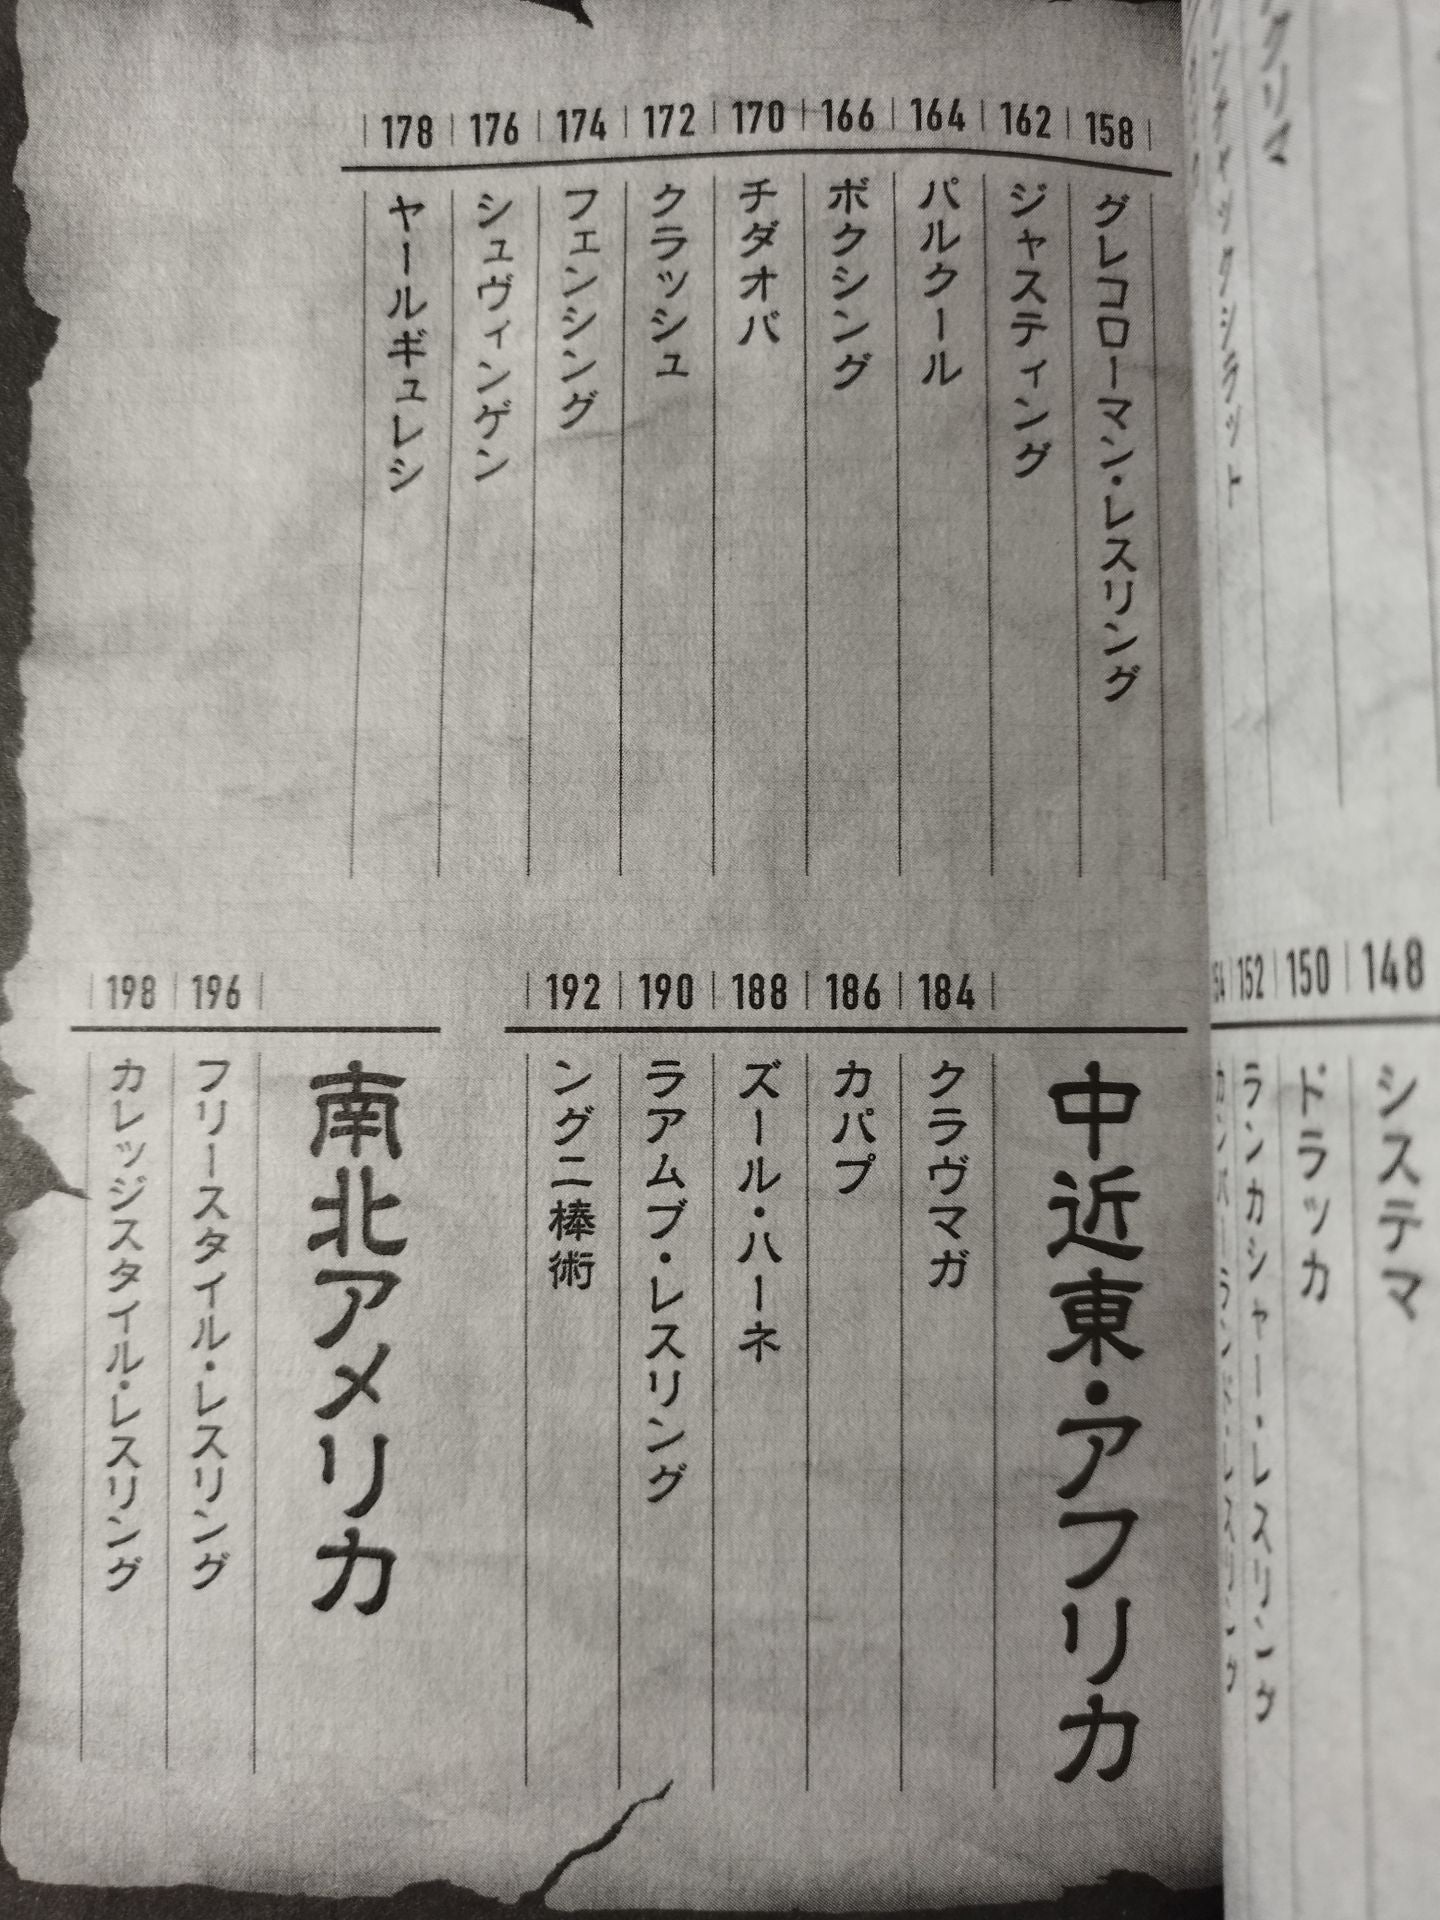 シラット
148 システマ
150 ドラッカ
152 ランカシャー・レスリング
158 グレコローマン・レスリング
162 ジャスティング
164 パルクール
166 ボクシング
170 チダオバ
172 クラッシュ
174 フェンシング
176 シュヴィンゲン
178 ヤールギュレシ
中近東・アフリカ
184 クラヴマガ
186 カパプ
188 ズール・ハーネ
190 ラアムブ・レスリング
192 ングニ棒術
南北アメリカ
196 フリースタイル・レスリング
198 カレッジスタイル・レスリング